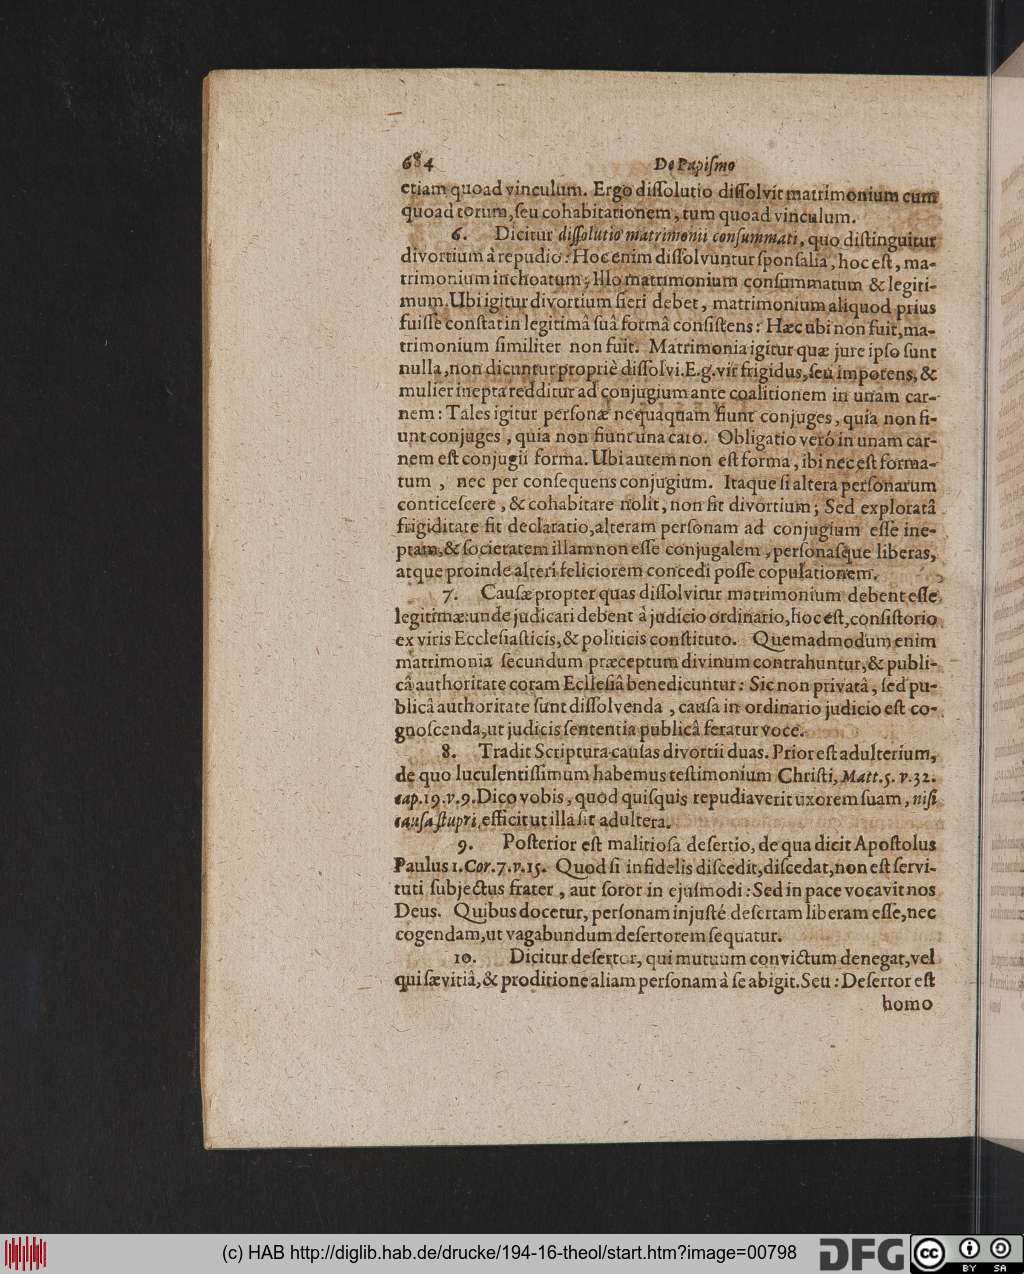 684 De Papiſmo
etiam quoad vinculum. Ergo diſſolutio diſſolvit matrimonium cum
quoad torum, ſeu cohabitationem, tum quoad vinculum.
6. Dicitur diſſolutio matrimonii conſummati, quo diſtinguitur
divortium à repudio: Hoc enim diſſolvuntur ſponſalia, hoc eſt, ma-
trimonium inchoatum; Illo matrimonium conſummatum & legiti-
mum. Ubi igitur divortium fieri debet, matrimonium aliquod prius
fuiſſe conſtat in legitimâ ſuâ formâ conſiſtens: Hæc ubi non fuit, ma-
trimonium ſimiliter non fuit. Matrimonia igitur quæ jure ipſo ſunt
nulla, non dicuntur propriè diſſolvi. E.g. vir frigidus, ſeu impotens, &
mulier inepta redditur ad conjugium ante coalitionem in unam car-
nem: Tales igitur perſonæ nequaquam fiunt conjuges, quia non fi-
unt conjuges, quia non fiunt una caro. Obligatio verò in unam car-
nem eſt conjugii forma. Ubi autem non eſt forma, ibi nec eſt forma-
tum, nec per conſequens conjugium. Itaque ſi altera perſonarum
conticeſcere, & cohabitare nolit, non fit divortium; Sed exploratâ
frigiditate fit declaratio, alteram perſonam ad conjugium eſſe ine-
ptam, & ſocietatem illam non eſſe conjugalem, perſonaſque liberas,
atque proinde alteri feliciorem concedi poſſe copulationem.
7. Cauſæ propter quas diſſolvitur matrimonium debent eſſe
legitimæ: unde judicari debent à judicio ordinario, hoc eſt, conſiſtorio
ex viris Eccleſiaſticis, & politicis conſtituto. Quemadmodum enim
matrimonia ſecundum præceptum divinum contrahuntur, & publi-
câ authoritate coram Eclleſiâ benedicuntur: Sic non privatâ, ſed pu-
blicâ authoritate ſunt diſſolvenda, cauſa in ordinario judicio eſt co-
gnoſcenda, ut judicis ſententia publicâ feratur voce.
8. Tradit Scriptura cauſas divortii duas. Prior eſt adulterium,
de quo luculentiſſimum habemus teſtimonium Chriſti, Matt. 5. v. 32.
cap. 19. v. 9. Dico vobis, quòd quiſquis repudiaverit uxorem ſuam, niſi
cauſa ſtupri, efficit ut illa ſit adultera.
9. Poſterior eſt malitioſa deſertio, de qua dicit Apoſtolus
Paulus 1. Cor. 7. v. 15. Quod ſi infidelis diſcedit, diſcedat, non eſt ſervi-
tuti ſubjectus frater, aut ſoror in ejuſmodi: Sed in pace vocavit nos
Deus. Quibus docetur, perſonam injuſté deſertam liberam eſſe, nec
cogendam, ut vagabundum deſertorem ſequatur.
10. Dicitur deſertor, qui mutuum convictum denegat, vel
qui ſævitiâ, & proditione aliam perſonam à ſe abigit. Seu: Deſertor eſt
homo
(c) HAB http://diglib.hab.de/drucke/194-16-theol/start.htm?image=00798
DFG cc BY SA